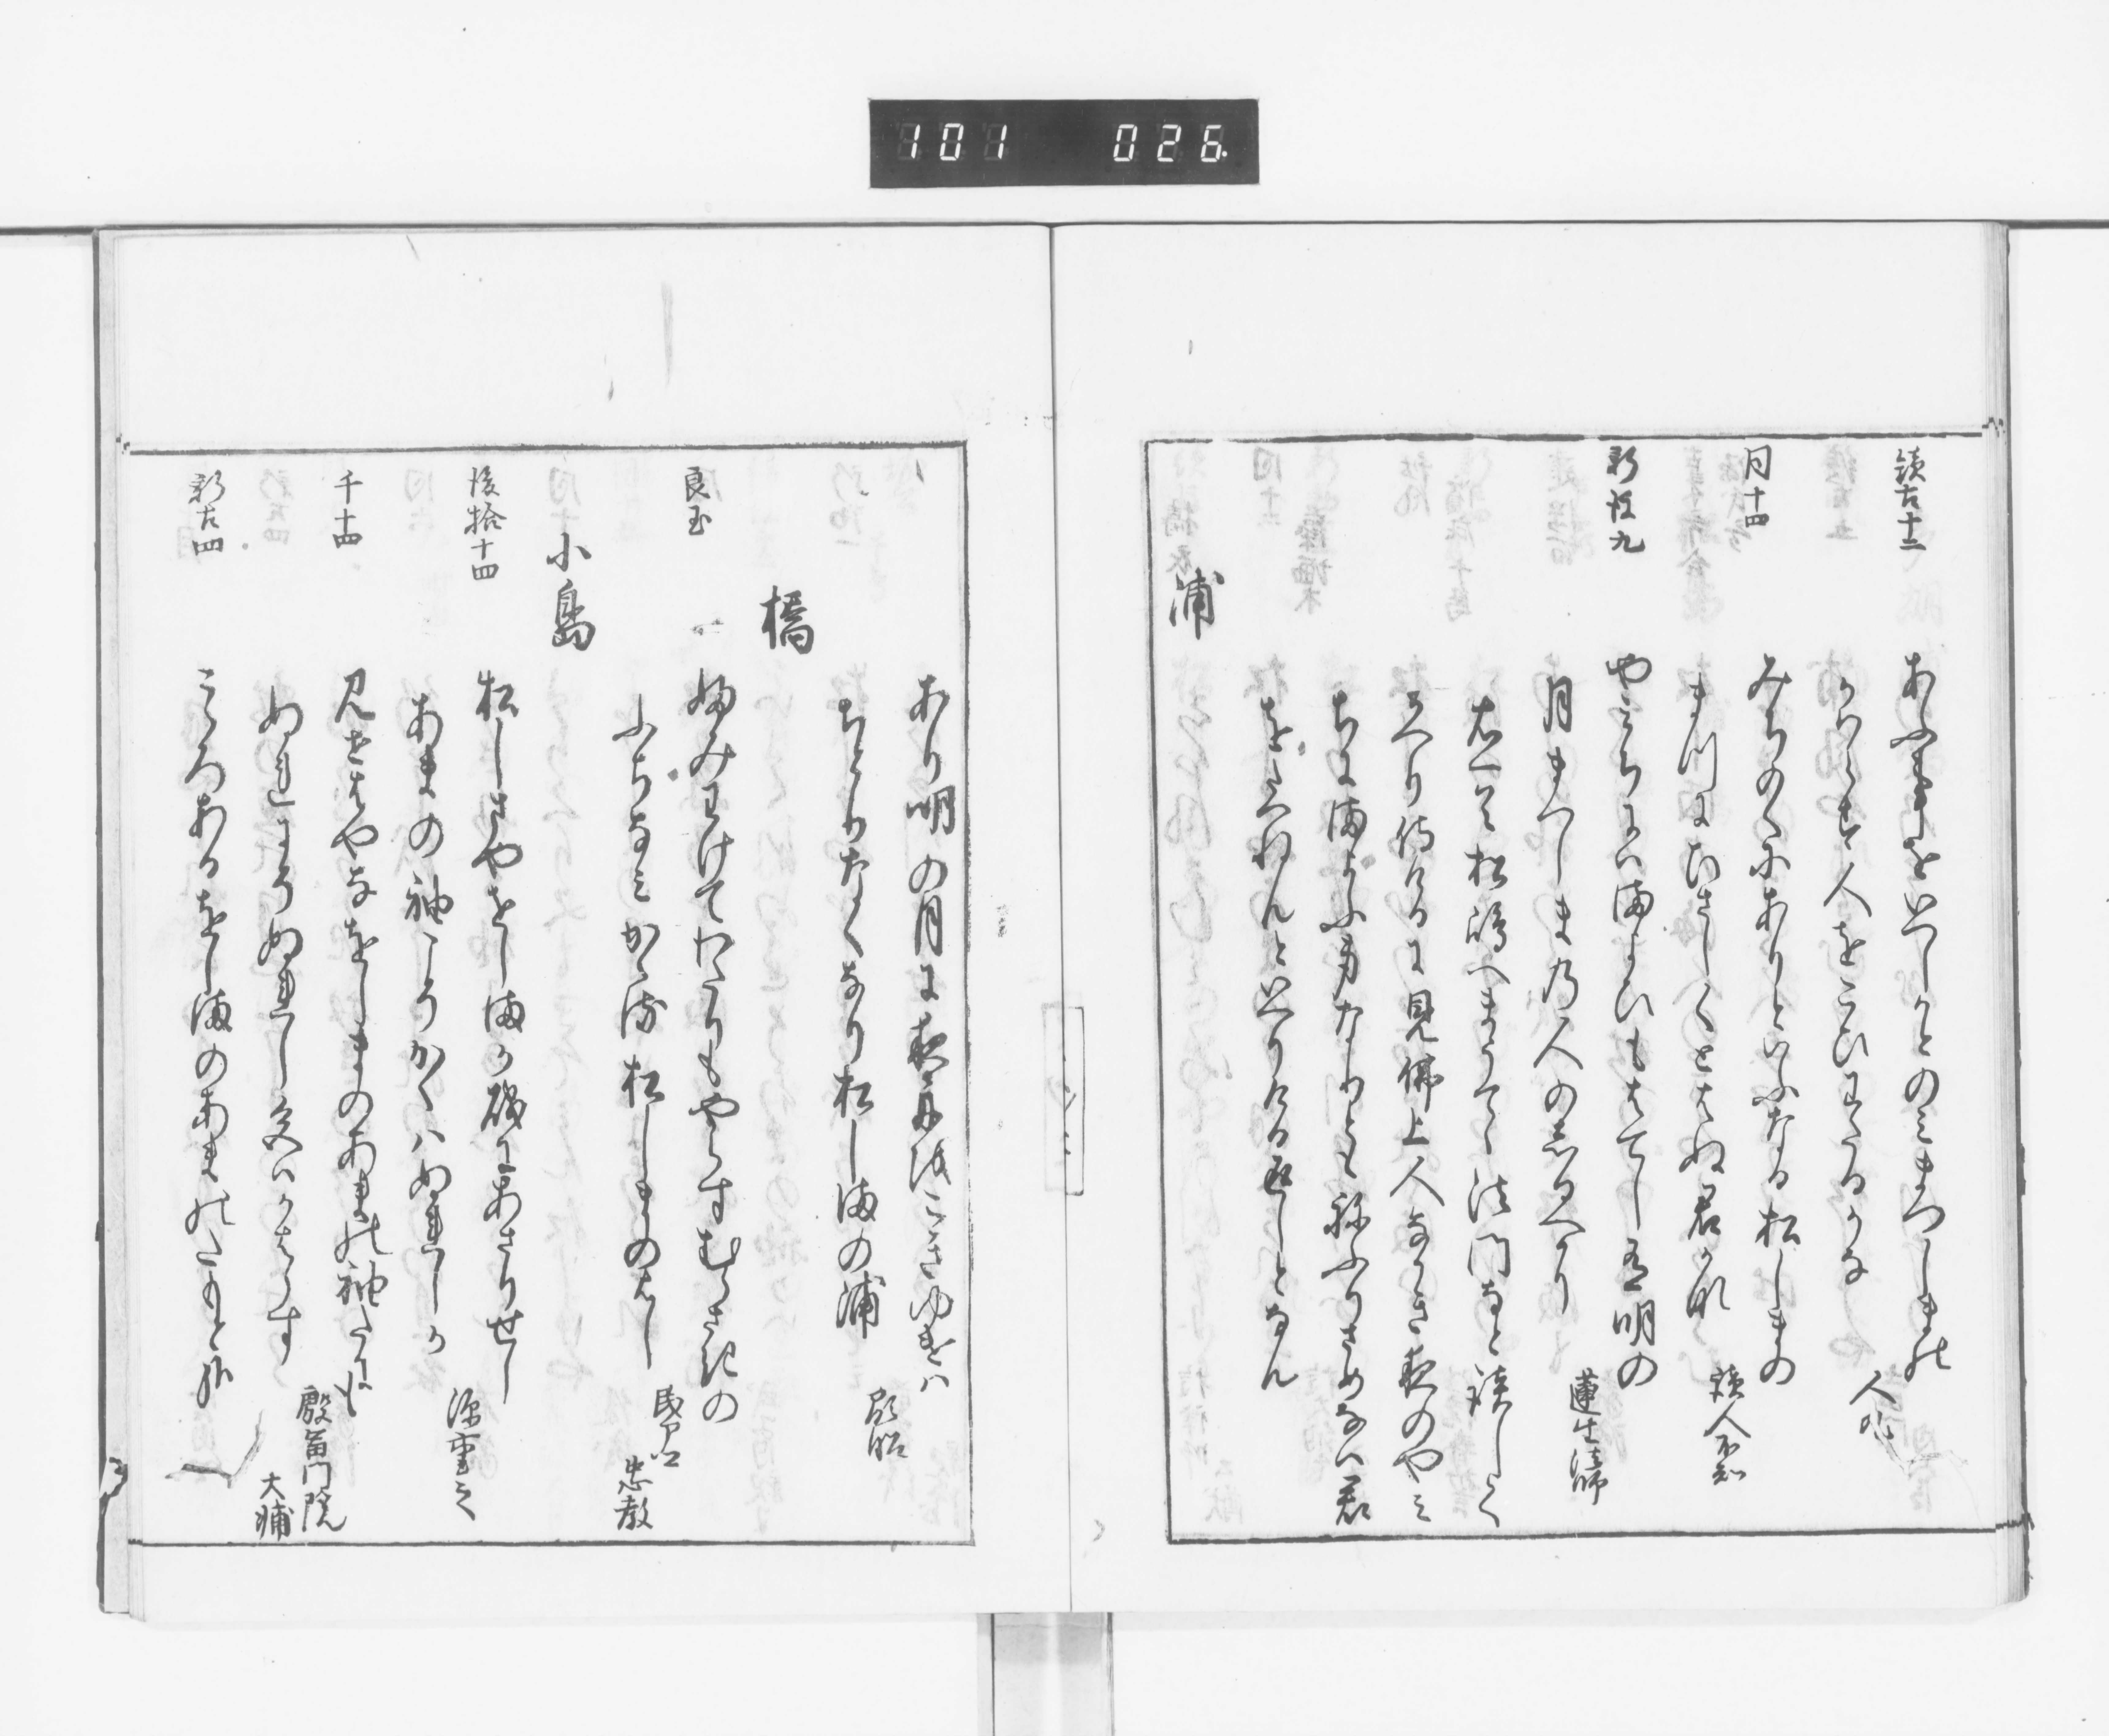 101 026
続古十二 あふ事をいつしかとのみまつしまの
かはらす人をこひわたるかな 人丸
同十四 みちのくにありといふなる松しまの
まつにひさしくとはぬ君かな 読人不知
新後九 やみちには満よひもはてし有明の
月まつしまの人のしるへに 蓮生法師
右は松嶋へまうてゝ法門なと談して
かへり侍けるに見佛上人なかき夜のやみ
ちに満よふ身なりとも祢ふりさめなは君
をたつねんといへりける返しとなん
浦
あり明の月に夜舟をこきゆけは
ちとりなくなり松し満の浦 顕昭
橋
良玉 ふみわけてわたりもやらすむらさきの
ふちなみかゝる松しまのはし 民部卿忠教
小島
後拾十四 松しまやをし満か磯にあさりせし
あまの袖こそかくはぬれしか 源重之
千十四 見せはやなをしまのあまの袖たにも
ぬれにそぬれし色はかはらす 殷富門院大輔
新古四 こゝろあるをし満のあまのたもと哉